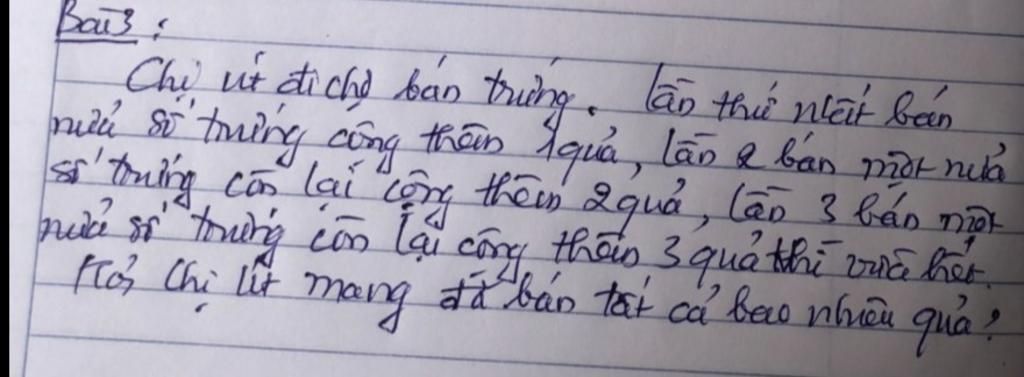 Bài 3 :
Chị út đi chợ bán trứng. lần thứ nhất bán
nửa số trứng cộng thêm 1 quả, lần 2 bán một nửa
số trứng còn lại cộng thêm 2 quả, lần 3 bán một
nửa số trứng còn lại cộng thêm 3 quả thì vừa hết.
Hỏi Chị út mang đã bán tất cả bao nhiêu quả?